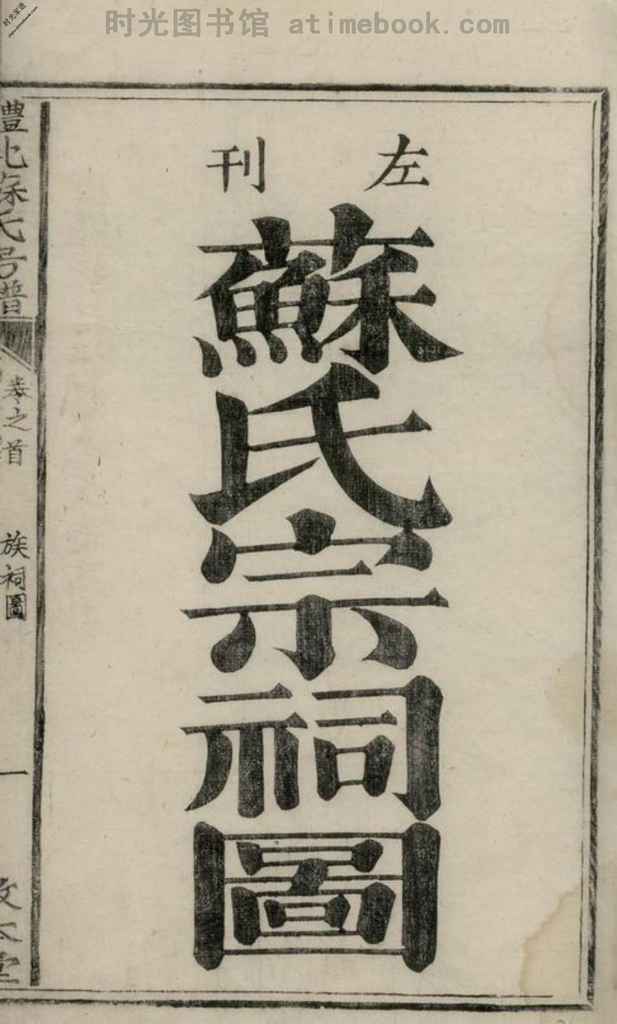 时光图书馆 atimebook.com
左刊
蘇氏宗祠圖
豊北蘇氏弓譜
卷之首
族祠圖
一
敦本堂